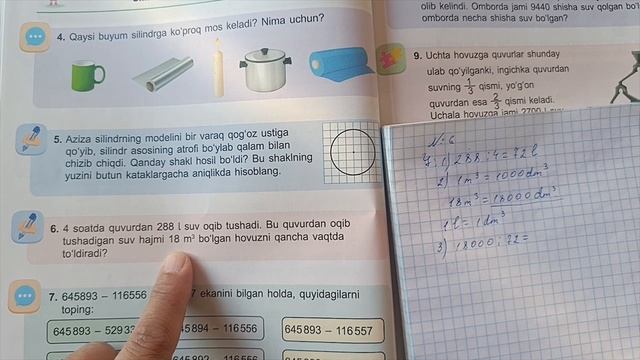 4. Qaysi buyum silindrga ko'proq mos keladi? Nima uchun?
5. Aziza silindrning modelini bir varaq qog'oz ustiga
qo'yib, silindr asosining atrofi bo'ylab qalam bilan
chizib chiqdi. Qanday shakl hosil bo'ldi? Bu shaklning
yuzini butun kataklargacha aniqlikda hisoblang.
6. 4 soatda quvurdan 288 l suv oqib tushadi. Bu quvurdan oqib
tushadigan suv hajmi 18 m³ bo'lgan hovuzni qancha vaqtda
to'ldiradi?
7. 645893 – 116556 7 ekanini bilgan holda, quyidagilarni
toping:
645893 – 5293 5894 – 116556 645893 – 116557
olib kelindi. Omborda jami 9440 shisha suv qolgan bo'l
omborda necha shisha suv bo'lgan?
9. Uchta hovuzga quvurlar shunday
ulab qo'yilganki, ingichka quvurdan
suvning 1/3 qismi, yo'g'on
quvurdan esa 2/3 qismi keladi.
Uchala hovuzga jami 2700 l
№ 6
1) 288 : 4 = 72 l
2) 1m³ = 1000 dm³
18m³ = 18000 dm³
1 l = 1 dm³
3) 18000 : 72 =